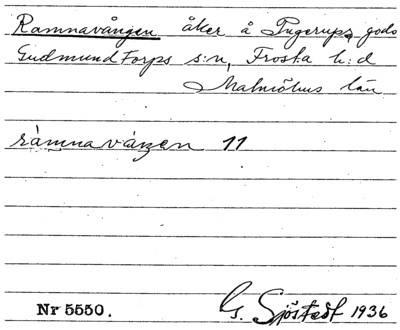 Ramnavången åker å Tngerups gods
Gudmundtorps s:n, Frosta h:d
Malmöhus län
ràmnavånen 11
Nr 5550.
G. Sjöstedt 1936